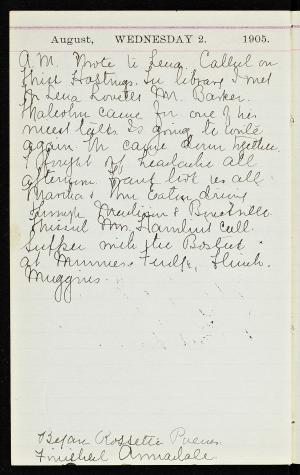 August, WEDNESDAY 2. 1905.
A.M. Wrote to Lena. Called on
Miss Hastings. In library I met
Dr Lena Lovells Mr. Barker.
Malcolm came for one of his
nicest talks. Is going to write
again. We came down together.
I fought off headache all
afternoon. Frank took us all
Martha & Mrs Eaton driving
through &
Missed Mrs. Hamlin's call.
Supper with the
at Fudge, Flinch
Muggins.
Began Rossetti Poems
Finished Armadale